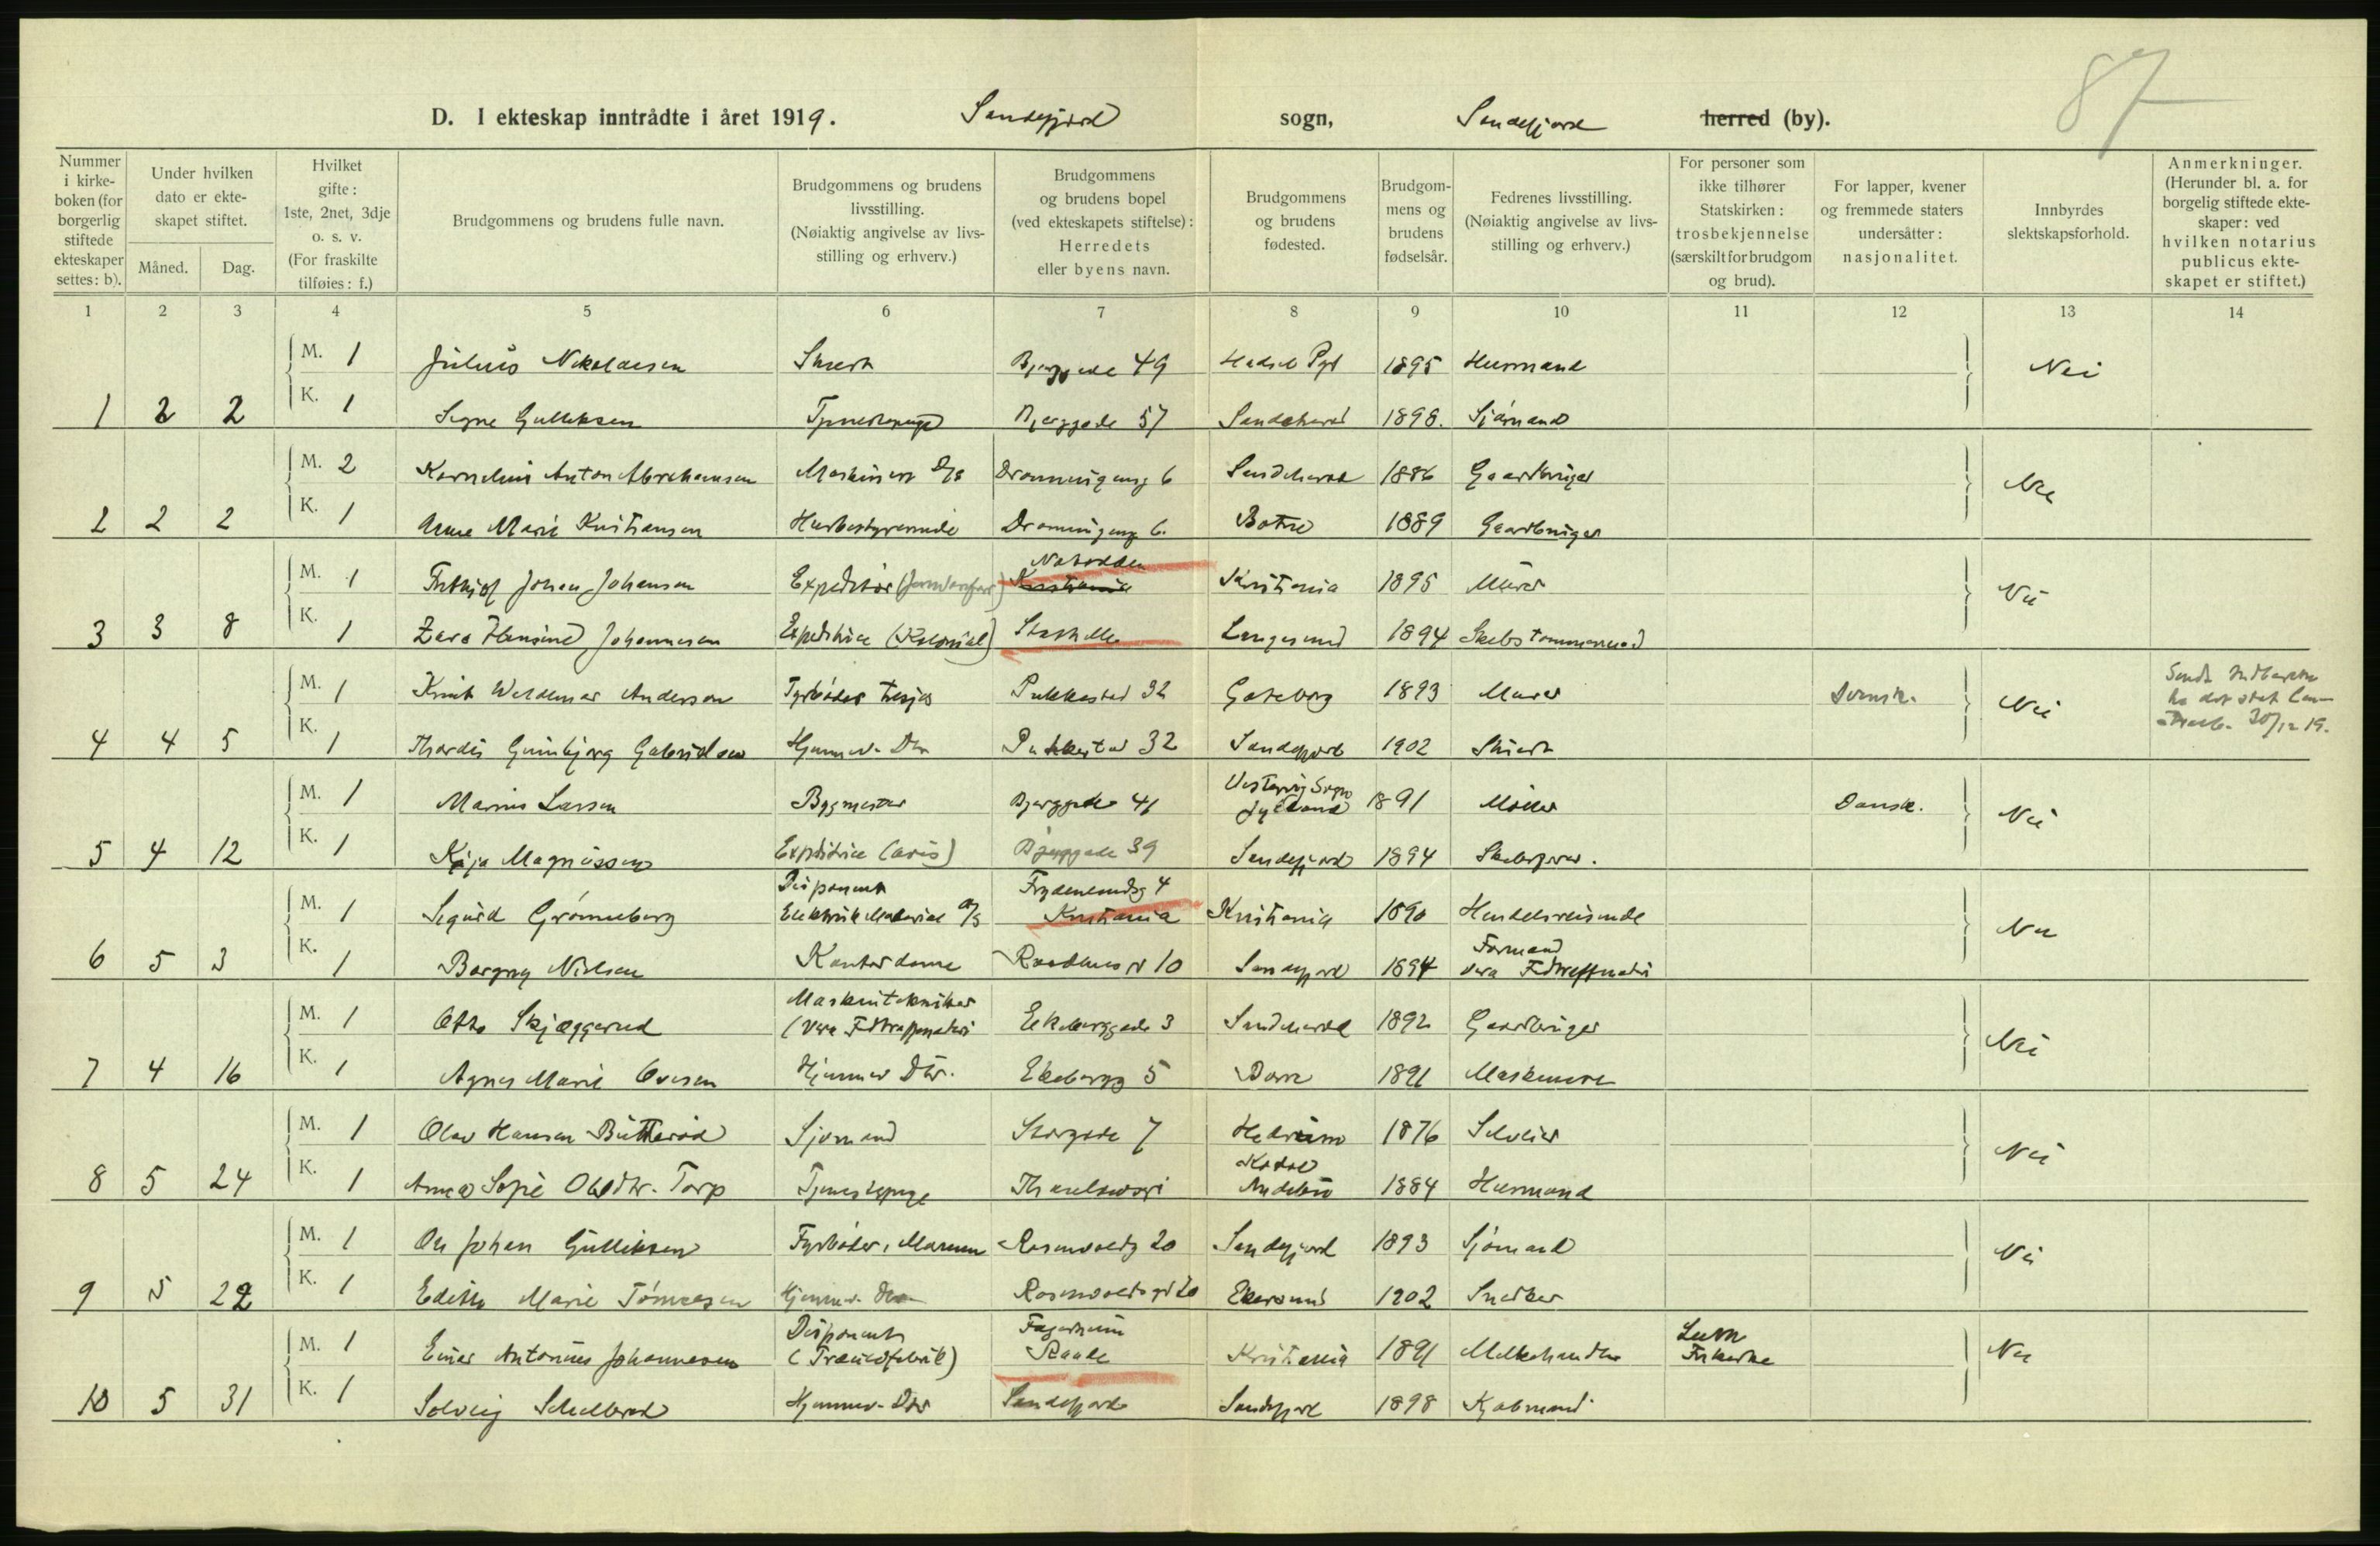 87
D. I ekteskap inntrådte i året 1919. Sandefjord sogn, Sandefjord herred (by).
Nummer i kirkeboken (for borgerlig stiftede ekteskaper settes: b).
Under hvilken dato er ekteskapet stiftet.
Måned. Dag.
Hvilket gifte: 1ste, 2net, 3dje o. s. v. (For fraskilte tilføies: f.)
Brudgommens og brudens fulle navn.
Brudgommens og brudens livsstilling. (Nøiaktig angivelse av livsstilling og erhverv.)
Brudgommens og brudens bopel (ved ekteskapets stiftelse): Herredets eller byens navn.
Brudgommens og brudens fødested.
Brudgommens og brudens fødselsår.
Fedrenes livsstilling. (Nøiaktig angivelse av livsstilling og erhverv.)
For personer som ikke tilhører Statskirken: trosbekjennelse (særskilt for brudgom og brud).
For lapper, kvener og fremmede staters undersåtter: nasjonalitet.
Innbyrdes slektskapsforhold.
Anmerkninger. (Herunder bl. a. for borgelig stiftede ekteskaper: ved hvilken notarius publicus ekteskapet er stiftet.)
1 2 3 4 5 6 7 8 9 10 11 12 13 14
M. 1 Julius Nikolaisen 49 Hadsel Pgd 1895 Husmand Nei
1 2 2 K. 1 Signe Gulliksen Bjerggade 57 Sandeherred 1898. Sjömand
M. 2 Kornelius Anton Abrahamsen Maskinist D/s Dronningensg 6 Sandeherred 1886 Gaardbruger Nei
2 2 2 K. 1 Anne Marie Kristiansen Husbestyrerinde Dronningensg 6. Botne 1889 Gaardbruger
M. 1 Frithjof Johan Johansen Expeditör Notodden Kristiania Kristiania 1895 Murer Nei
3 3 8 K. 1 Zara Hansine Johannesen Expeditrice (Kolonial) Stathelle Langesund 1894 Skibstømmermand
M. 1 Knut Waldemar Anderson Fyrböder Pukkestad 32 Göteborg 1893 Murer Svensk. Nei 30/12 19.
4 4 5 K. 1 Thordis Gunbjørg Gabrielsen Hjemmev. Dtr Pukkestad 32 Sandefjord 1902
M. 1 Marius Larsen Bygmester Bjerggade 41 Vestervig Sogn Jylland 1891 Möller Dansk. Nei
5 4 12 K. 1 Kaja Magnussen Expeditrice (avis) Bjerggade 39 Sandefjord 1894
M. 1 Sigurd Grönneberg Disponent Elektrisk Material A/S Frydenlundsg 4 Kristiania Kristiania 1890 Handelsreisende Nei
6 5 3 K. 1 Borgny Nielsen Kontordame 10 Sandefjord 1894 Formand Vera Fedtraffineri
M. 1 Otto Skjæggerud Maskintekniker (Vera Fedtraffineri Ekeberggade 3 Sandeherred 1892 Gaardbruger Nei
7 4 16 K. 1 Agnes Marie Evesen Hjemmev Dtr. Ekebergg 5 Borre 1891 Maskinist
M. 1 Olav Hansen Butteröd Sjømand Storgade 7 Hedrum 1876 Selveier Nei
8 5 24 K. 1 Anna Sofie Olsdtr. Torp Tjenestepige Kodal Andebu 1884 Husmand
M. 1 Ole Johan Gulliksen Fyrböder, Marinen Rosenvoldg 20 Sandefjord 1893 Sjömand Nei
9 5 22 K. 1 Edith Marie Tönnesen Hjemmev. Dtr Rosenvoldsgd 20 Ekersund 1902 Snedker
M. 1 Einar Antonius Johannesen Disponent Fagerheim Raade Kristiania 1891 Melkehandler Luth Frikirke Nei
10 5 31 K. 1 Solveig Hjemmev. Dtr Sandefjord Sandefjord 1898 Kjøbmand